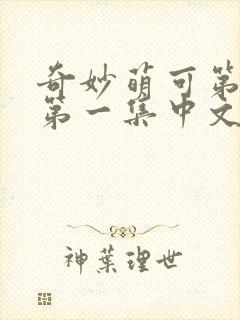 奇妙萌可第
第一集中文
神葉理世